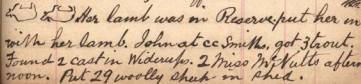 Her lamb was in Reserve put her in
with her lamb. John at cc Smiths, got 3 trout.
Found 2 cast in Widerups. 2 Miss McNutts after
noon. Put 29 woolly sheep in shed.